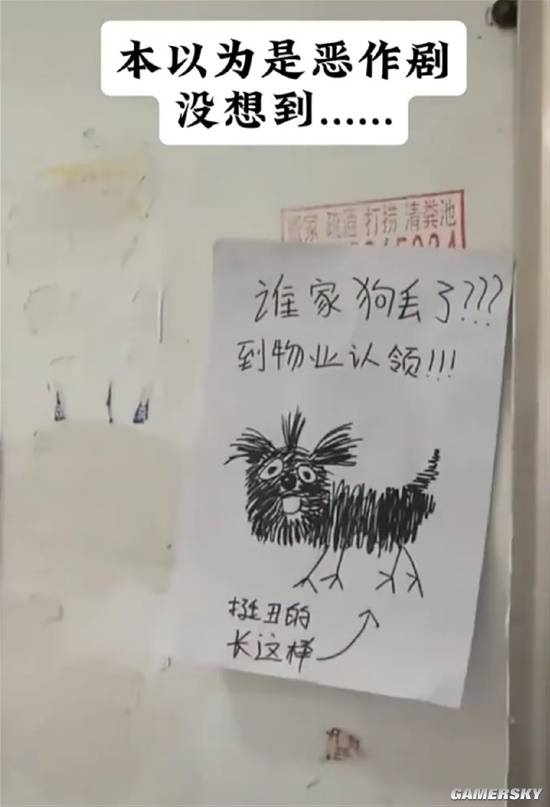 本以为是恶作剧
没想到......
搬家 疏通 打捞 清粪池
谁家狗丢了???
到物业认领!!!
挺丑的
长这样
GAMERSKY